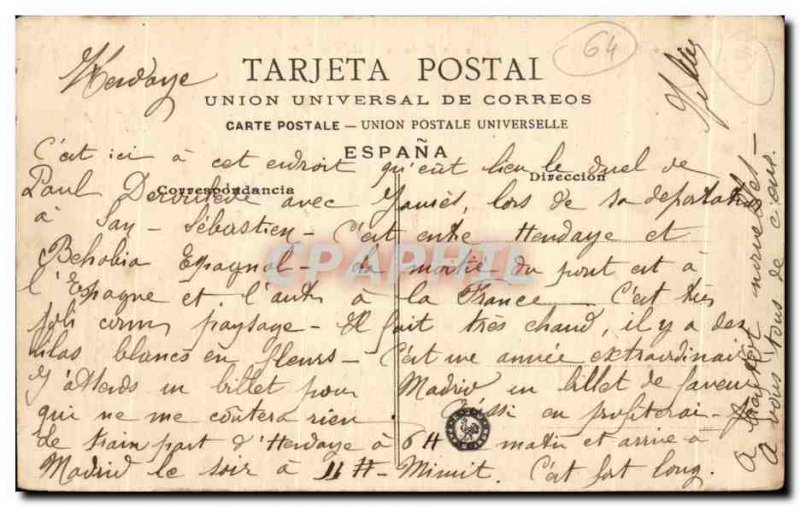 Hendaye
64
TARJETA POSTAL
UNION UNIVERSAL DE CORREOS
CARTE POSTALE — UNION POSTALE UNIVERSELLE
ESPAÑA
Correspondancia
Dirección
C'est ici à cet endroit qu'eût lieu le duel de
Paul Deroulède avec Jaurès, lors de sa déportation
à San-Sébastien — C'est entre Hendaye et
Behobia Espagnol — La moitié du pont est à
l'Espagne et l'autre à la France — C'est très
joli comme paysage — Il fait très chaud, il y a des
lilas blancs en fleurs — C'est une année extraordinaire
J'attends un billet pour Madrid un billet de faveur
qui ne me coutera rien. aussi en profiterai-je
Le train part d'Hendaye à 6H matin et arrive à
Madrid le soir à 11H — Minuit. C'est fort long.
A bientôt nouvelles —
A vous tous de cœur.
CPAPHIL